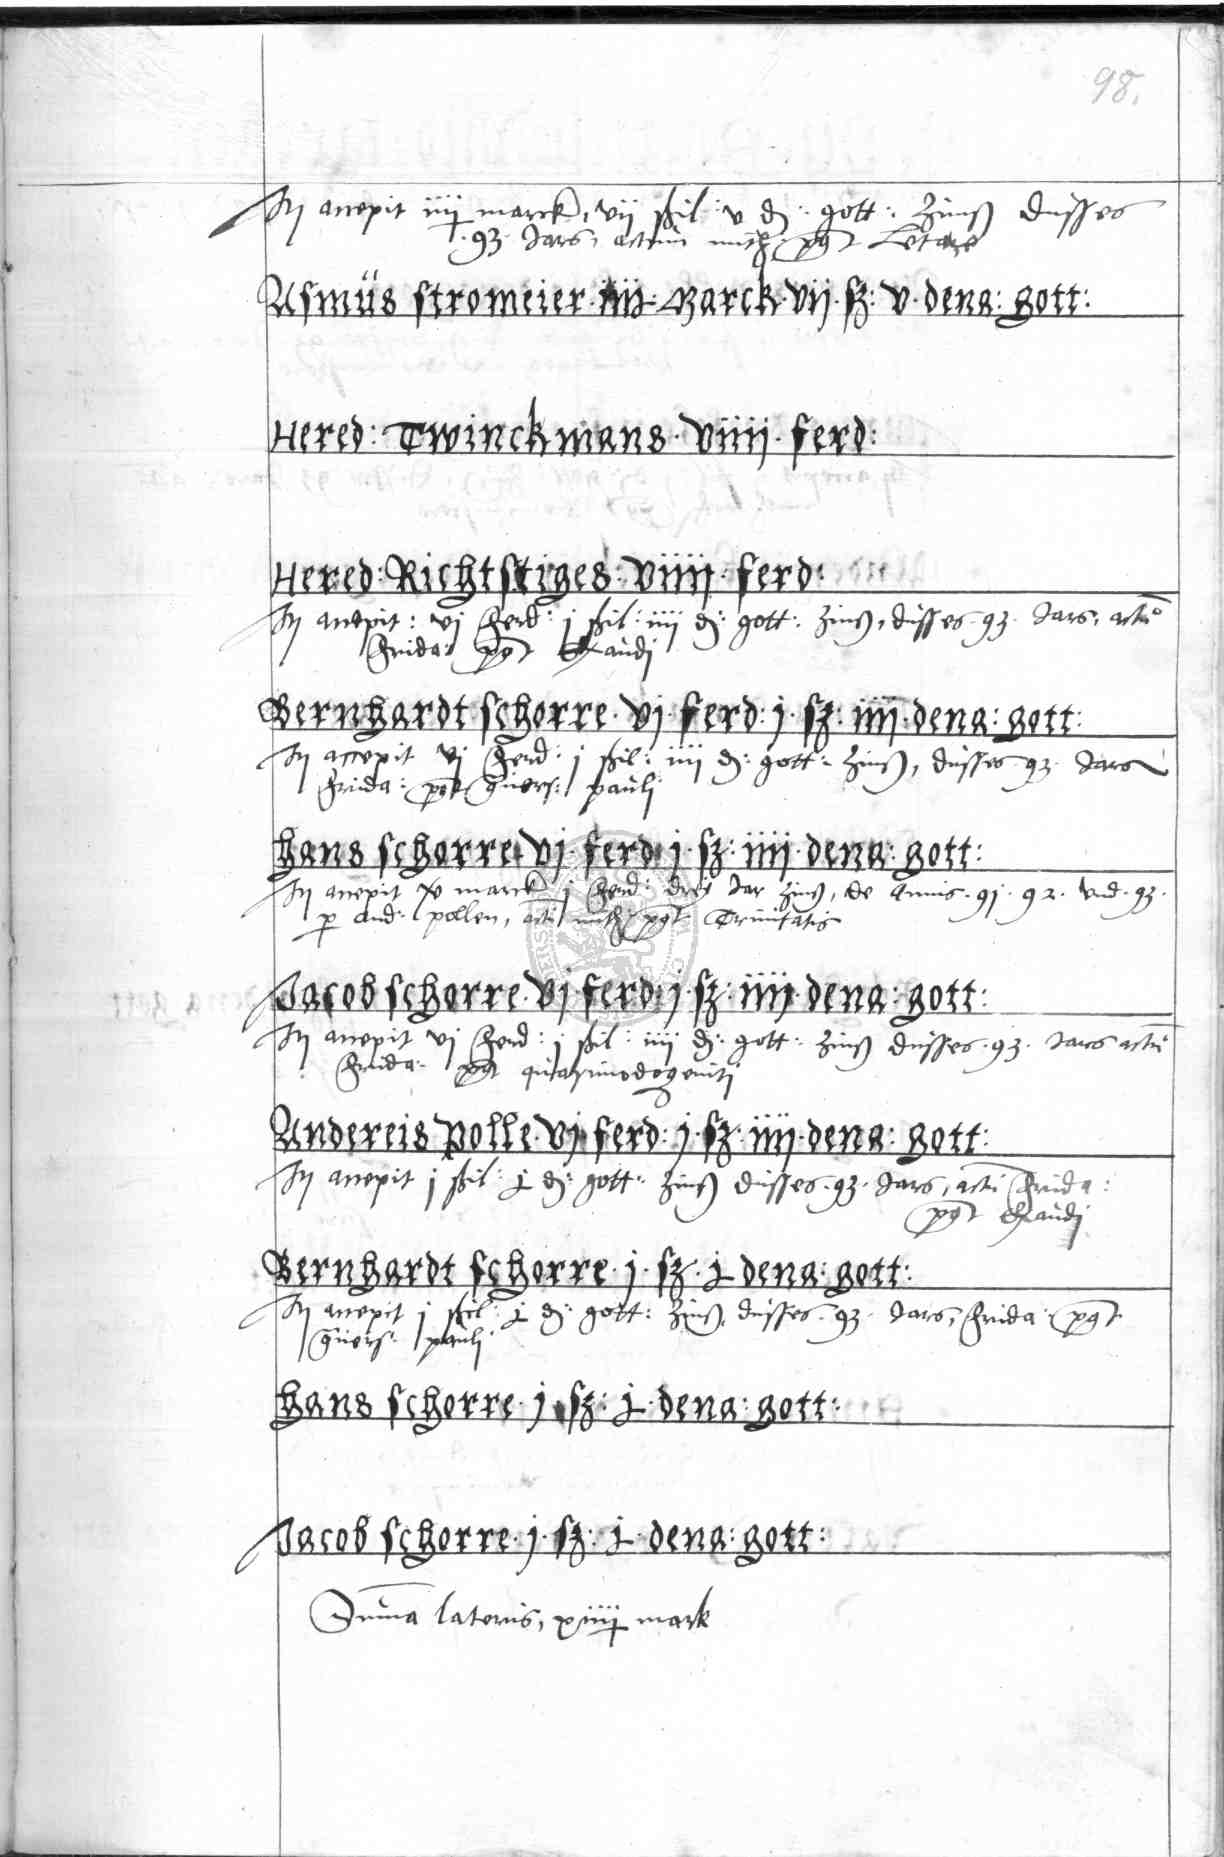 98.
H accepit iiij marck, vij ßil: v d: gott: Zinß düsses
·93· Jars, actum mith: pꝰt Letare
Asmüs stromeier · iiij · Marck · vij · sz: v · dena: gott:
Hered: Twinckmans · viiij · ferd:
Hered: Richtstiges: viiij · ferd:
H accepit: vj Ferd: j ßil: iiij d: gott: Zinß, düsses · 93 · Jars, actū
Frida: pꝰt Exaudj
Bernhardt schorre · vj · ferd: j · sz: iiij · dena: gott:
H accepit vj Ferd: j ßil: iiij d: gott: Zinß, düsses 93 · Jars
Frida: pꝰt Pauli
Hans schorre · vj · ferd j · sz: iiij · dena: gott:
H accepit marck j Ferd: drei Jar Zinß, de Annis · 91 · 92 · vnd · 93 ·
p And: pollen, acti mith: pꝰt Trinitatis
Jacob schorre · vj · ferd: j · sz: iiij · dena: gott:
H accepit vj Ferd: j ßil: iiij d: gott: Zinß düsses · 93 · Jars actū
Frida: pꝰt quasimodogeniti
Andereis Polle · vj · ferd: j · sz: iiij · dena: gott:
H accepit j ßil: j d: gott: Zinß düsses · 93 · Jars, acti Frida:
pꝰt Exaudj
Bernhardt schorre · j · sz · j dena: gott:
H accepit j ßil: j d: gott: Zinß, düsses · 93 · Jars, Frida: pꝰt
pauli
Hans schorre · j · sz: j · dena: gott:
Jacob schorre · j · sz: j · dena: gott:
Suma lateris, xiiij mark